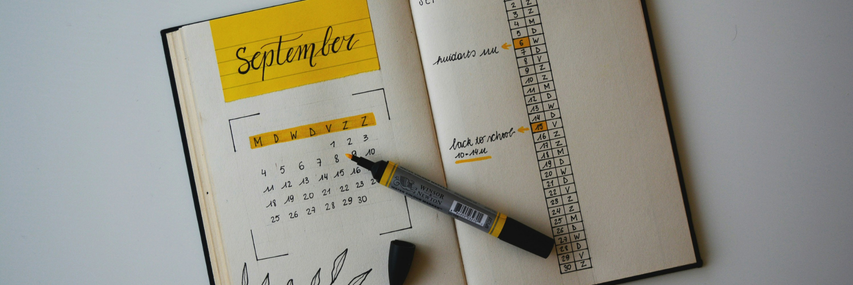 September
M D W D V Z Z
1 2 3
4 5 6 7 8 9 10
11 12 13 14 15 16
18 19 20 21 22 23 2
25 26 27 28 29 30
WINSOR
& NEWTON
2 Z
3 Z
4 M
5 D
6 W
7 D
8 V
9 Z
10 Z
11 M
12 D
13 W
14 D
15 V
16 Z
17 Z
18 M
19 D
20 W
21 D
22 V
23 Z
24 Z
25 M
26 D
27 W
28 D
29 V
30 Z
back to school
10-14u